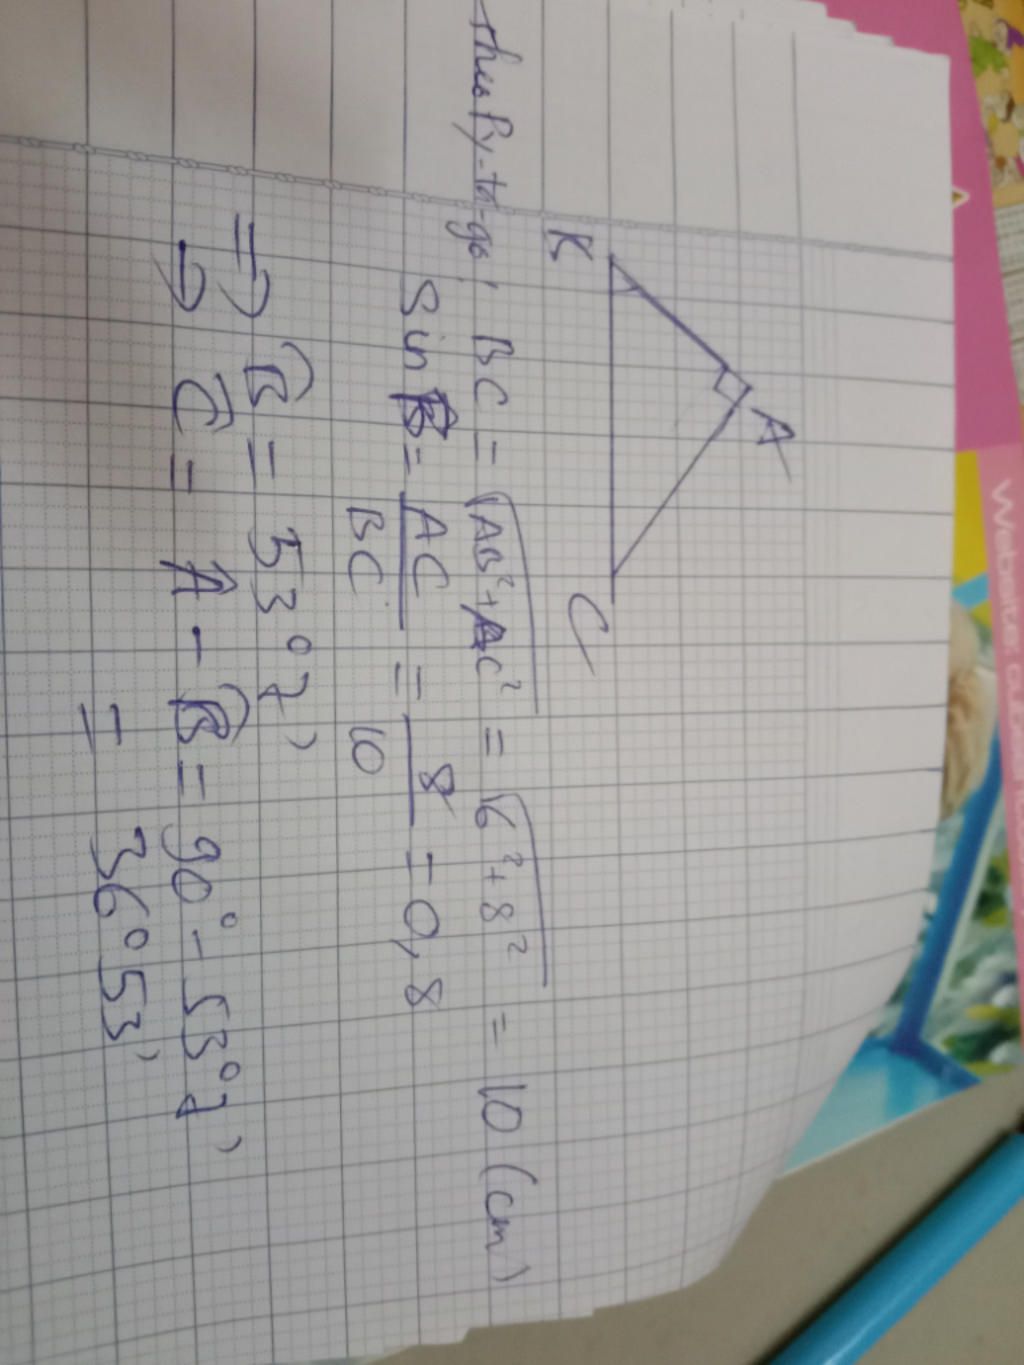 A
K
C
theo Py-ta-go, BC = √AB²+AC² = √6²+8² = 10 (cm)
Sin B̂ = AC/BC = 8/10 = 0,8
=> B̂ = 53°7'
→ Ĉ = Â - B̂ = 90° - 53°7'
= 36°53'